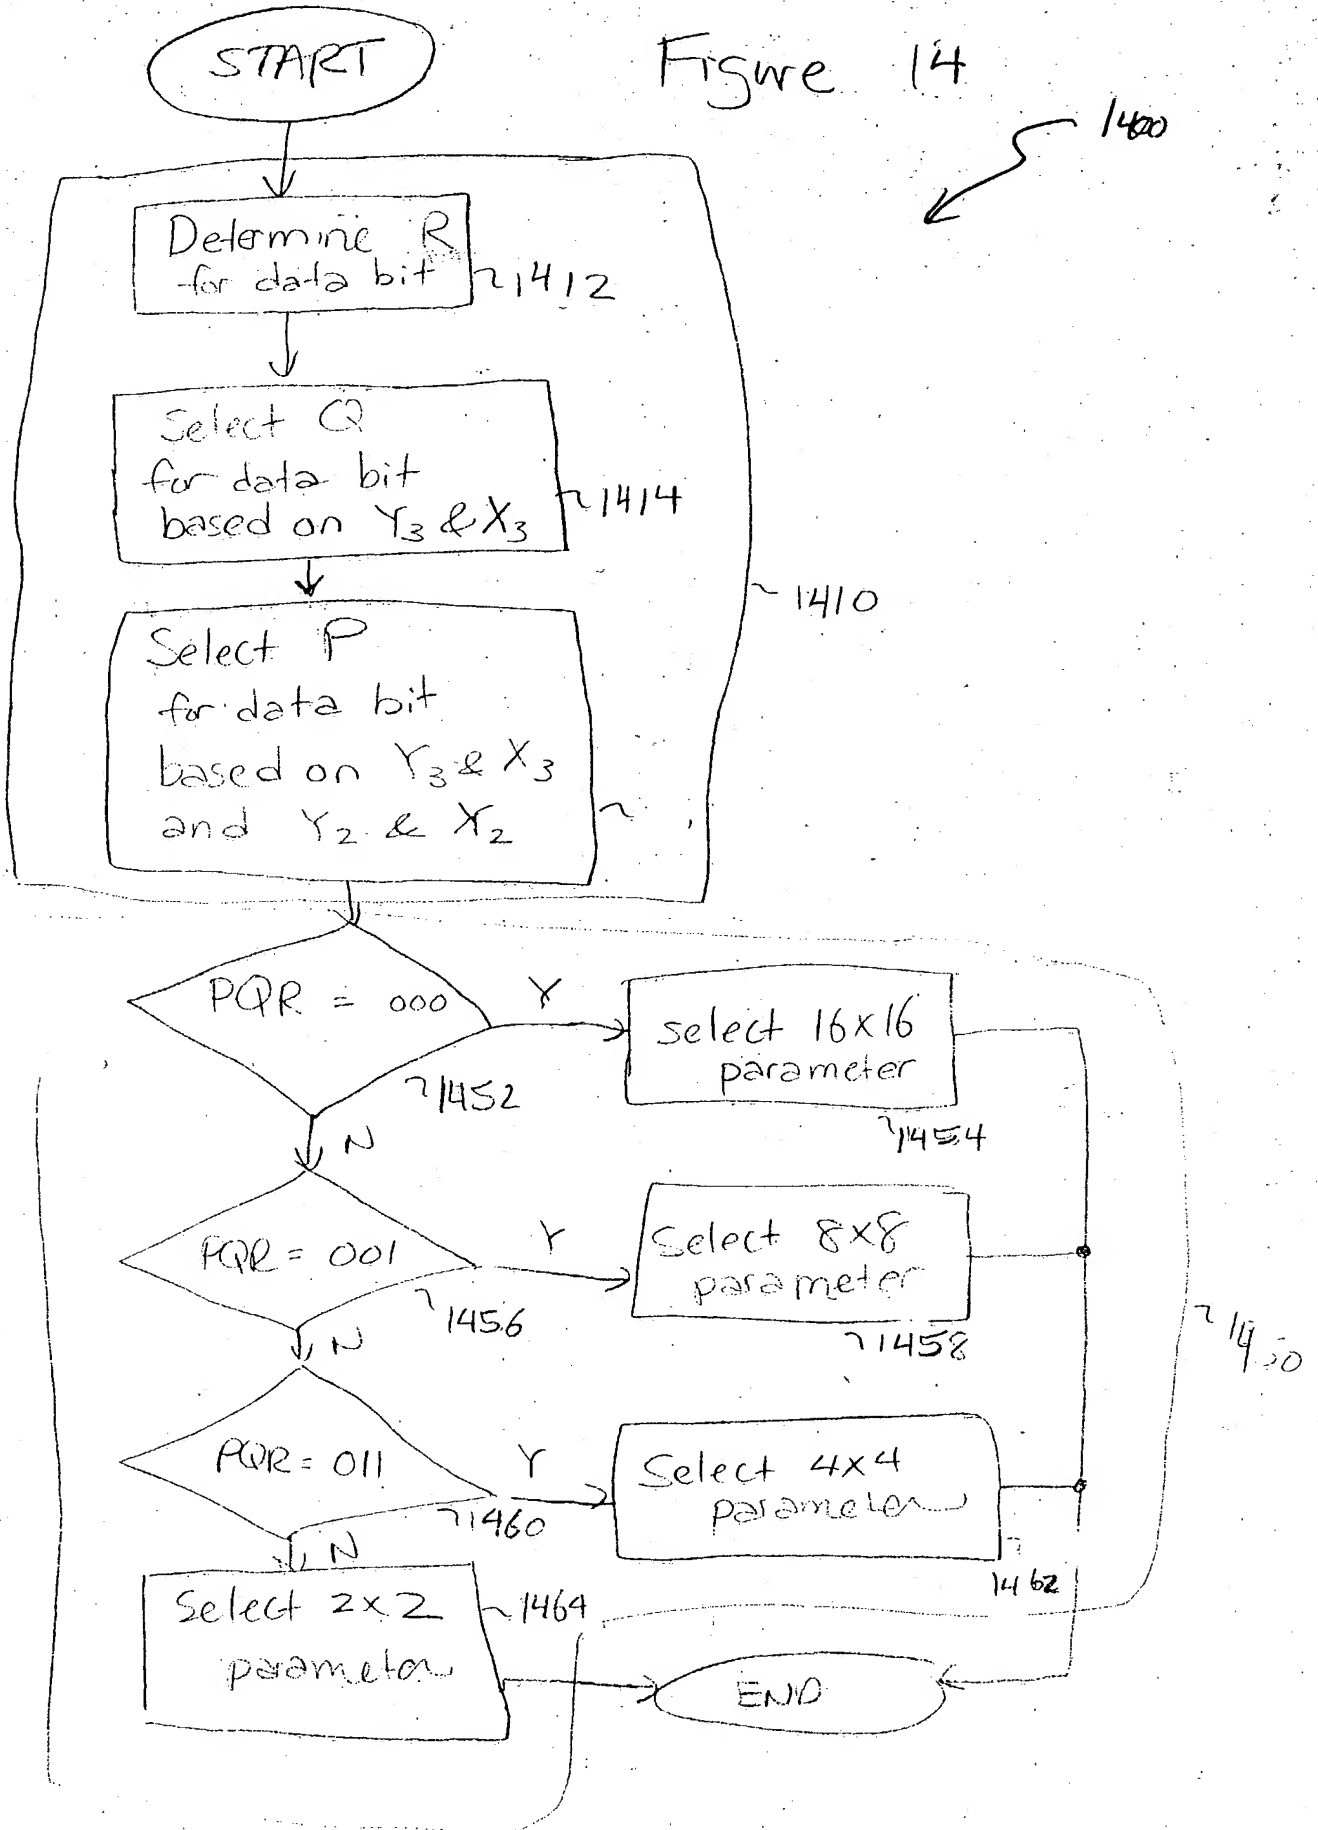 START
Figure 14
1400
Determine R
for data bit
1412
Select Q
for data bit
based on Y3 & X3
1414
1410
Select P
for data bit
based on Y3 & X3
and Y2 & X2
PQR = 000
Y
select 16x16
parameter
1452
1454
N
PQR = 001
Y
Select 8x8
parameter
1456
1458
N
PQR = 011
Y
Select 4x4
parameter
1460
1462
N
Select 2x2
parameter
1464
END